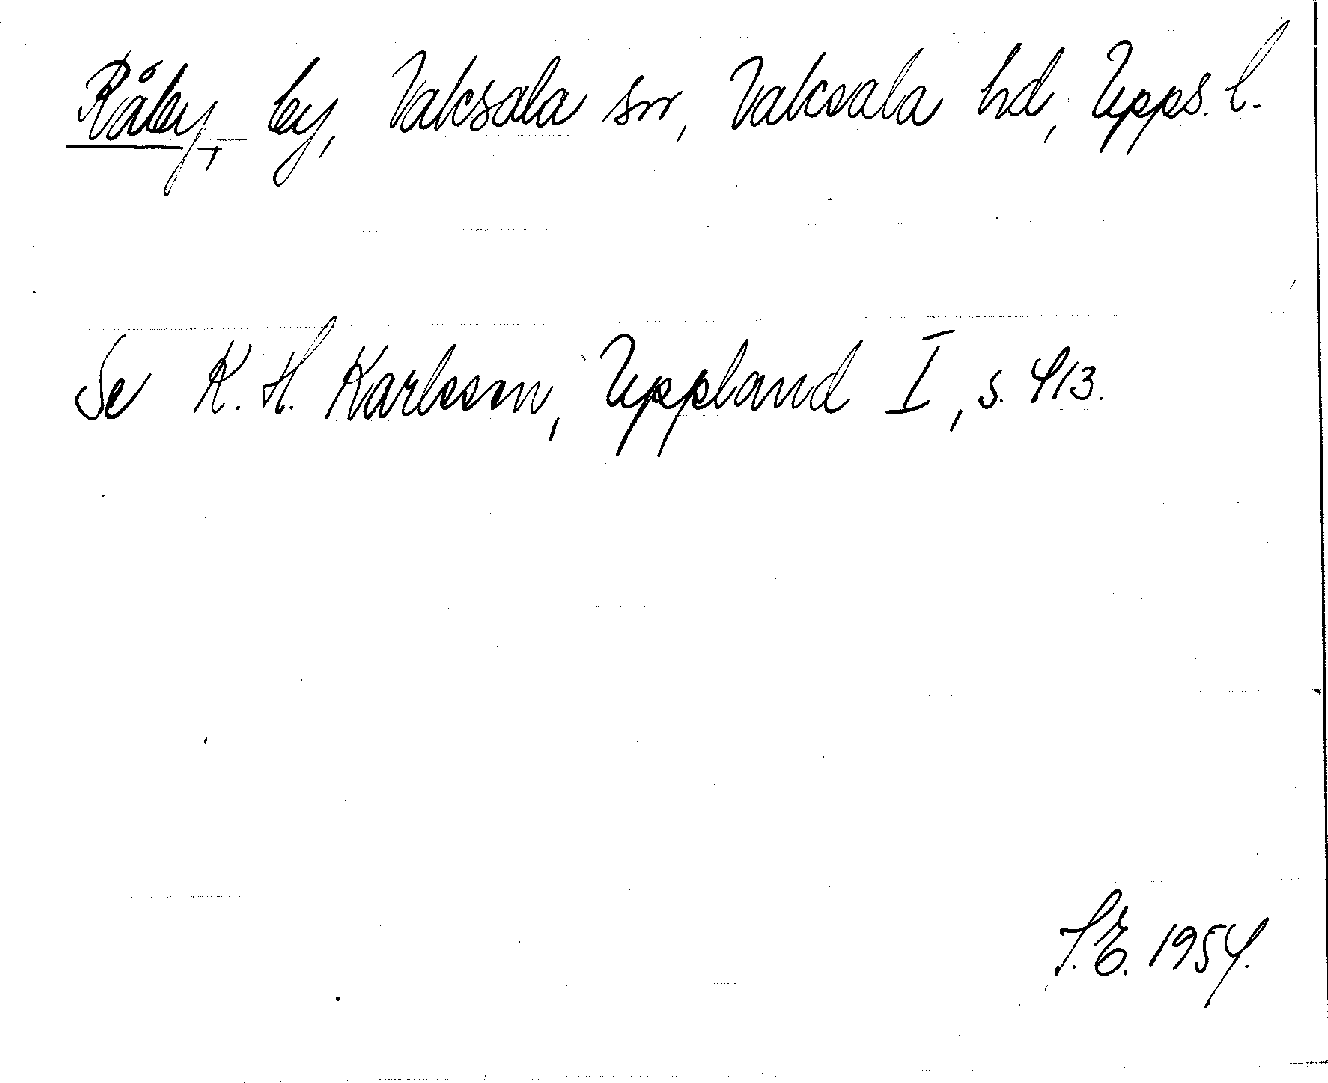 Råby, by, Vaksala sn, Vaksala hd, Upps. l.
Se K. H. Karlsson, Uppland I, s. 413.
S.E. 1954.